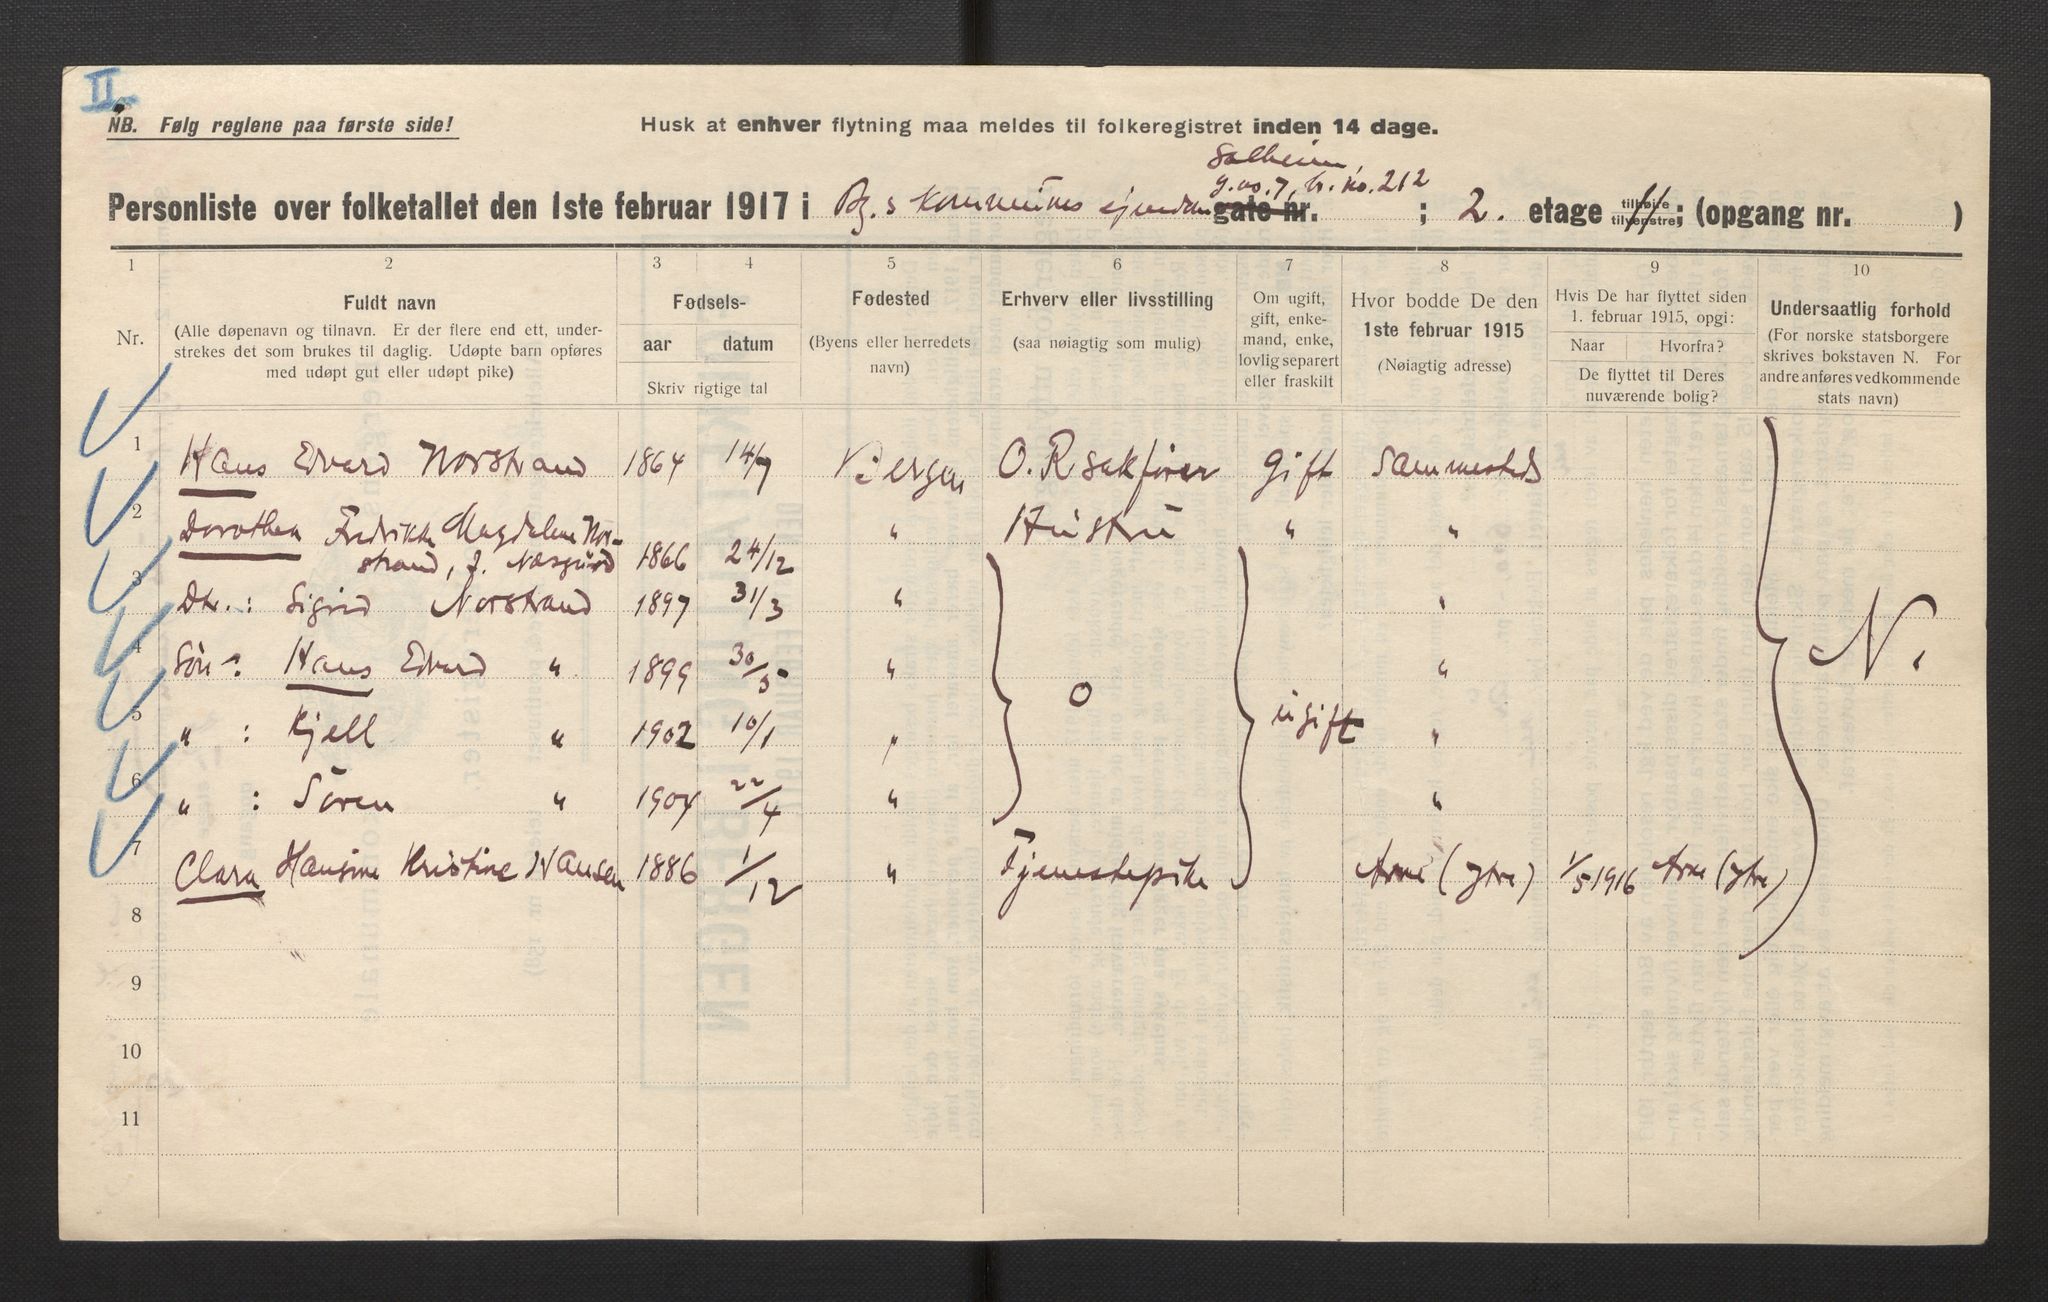 II
NB. Følg reglene paa første side!
Husk at enhver flytning maa meldes til folkeregistret inden 14 dage.
Solheim,
g.no. 7, br. no. 212
Personliste over folketallet den 1ste februar 1917 i Bg.s kommunes eiendom gate nr. ; 2. etage tilhøire tilvenstre; (opgang nr. )
1 2 3 4 5 6 7 8 9 10
Nr.
Fuldt navn
(Alle døpenavn og tilnavn. Er der flere end ett, under-
strekes det som brukes til daglig. Udøpte barn opføres
med udøpt gut eller udøpt pike)
Fødsels-
aar datum
Skriv rigtige tal
Fødested
(Byens eller herredets
navn)
Erhverv eller livsstilling
(saa nøiagtig som mulig)
Om ugift,
gift, enke-
mand, enke,
lovlig separert
eller fraskilt
Hvor bodde De den
1ste februar 1915
(Nøiagtig adresse)
Hvis De har flyttet siden
1. februar 1915, opgi:
Naar Hvorfra?
De flyttet til Deres
nuværende bolig?
Undersaatlig forhold
(For norske statsborgere
skrives bokstaven N. For
andre anføres vedkommende
stats navn)
1 Hans Edvard Norstrand 1864 14/7 Bergen O.R sakfører gift Sammesteds
2 Dorothea Fredrikke Magdalene Nor-
strand, f. 1866 24/12 " Hustru " "
3 Dtr.: Sigrid Norstrand 1897 31/3 " "
4 Søn: Hans Edvard " 1899 30/5 " O "
N.
5 " : Kjell " 1902 10/1 " ugift "
6 " : Sören " 1904 22/4 " "
7 Clara Hansine Kristine Hansen 1886 1/12 " Tjenestepike Arne (ytre) 1/5 1916 Arne (ytre)
8
9
10
11